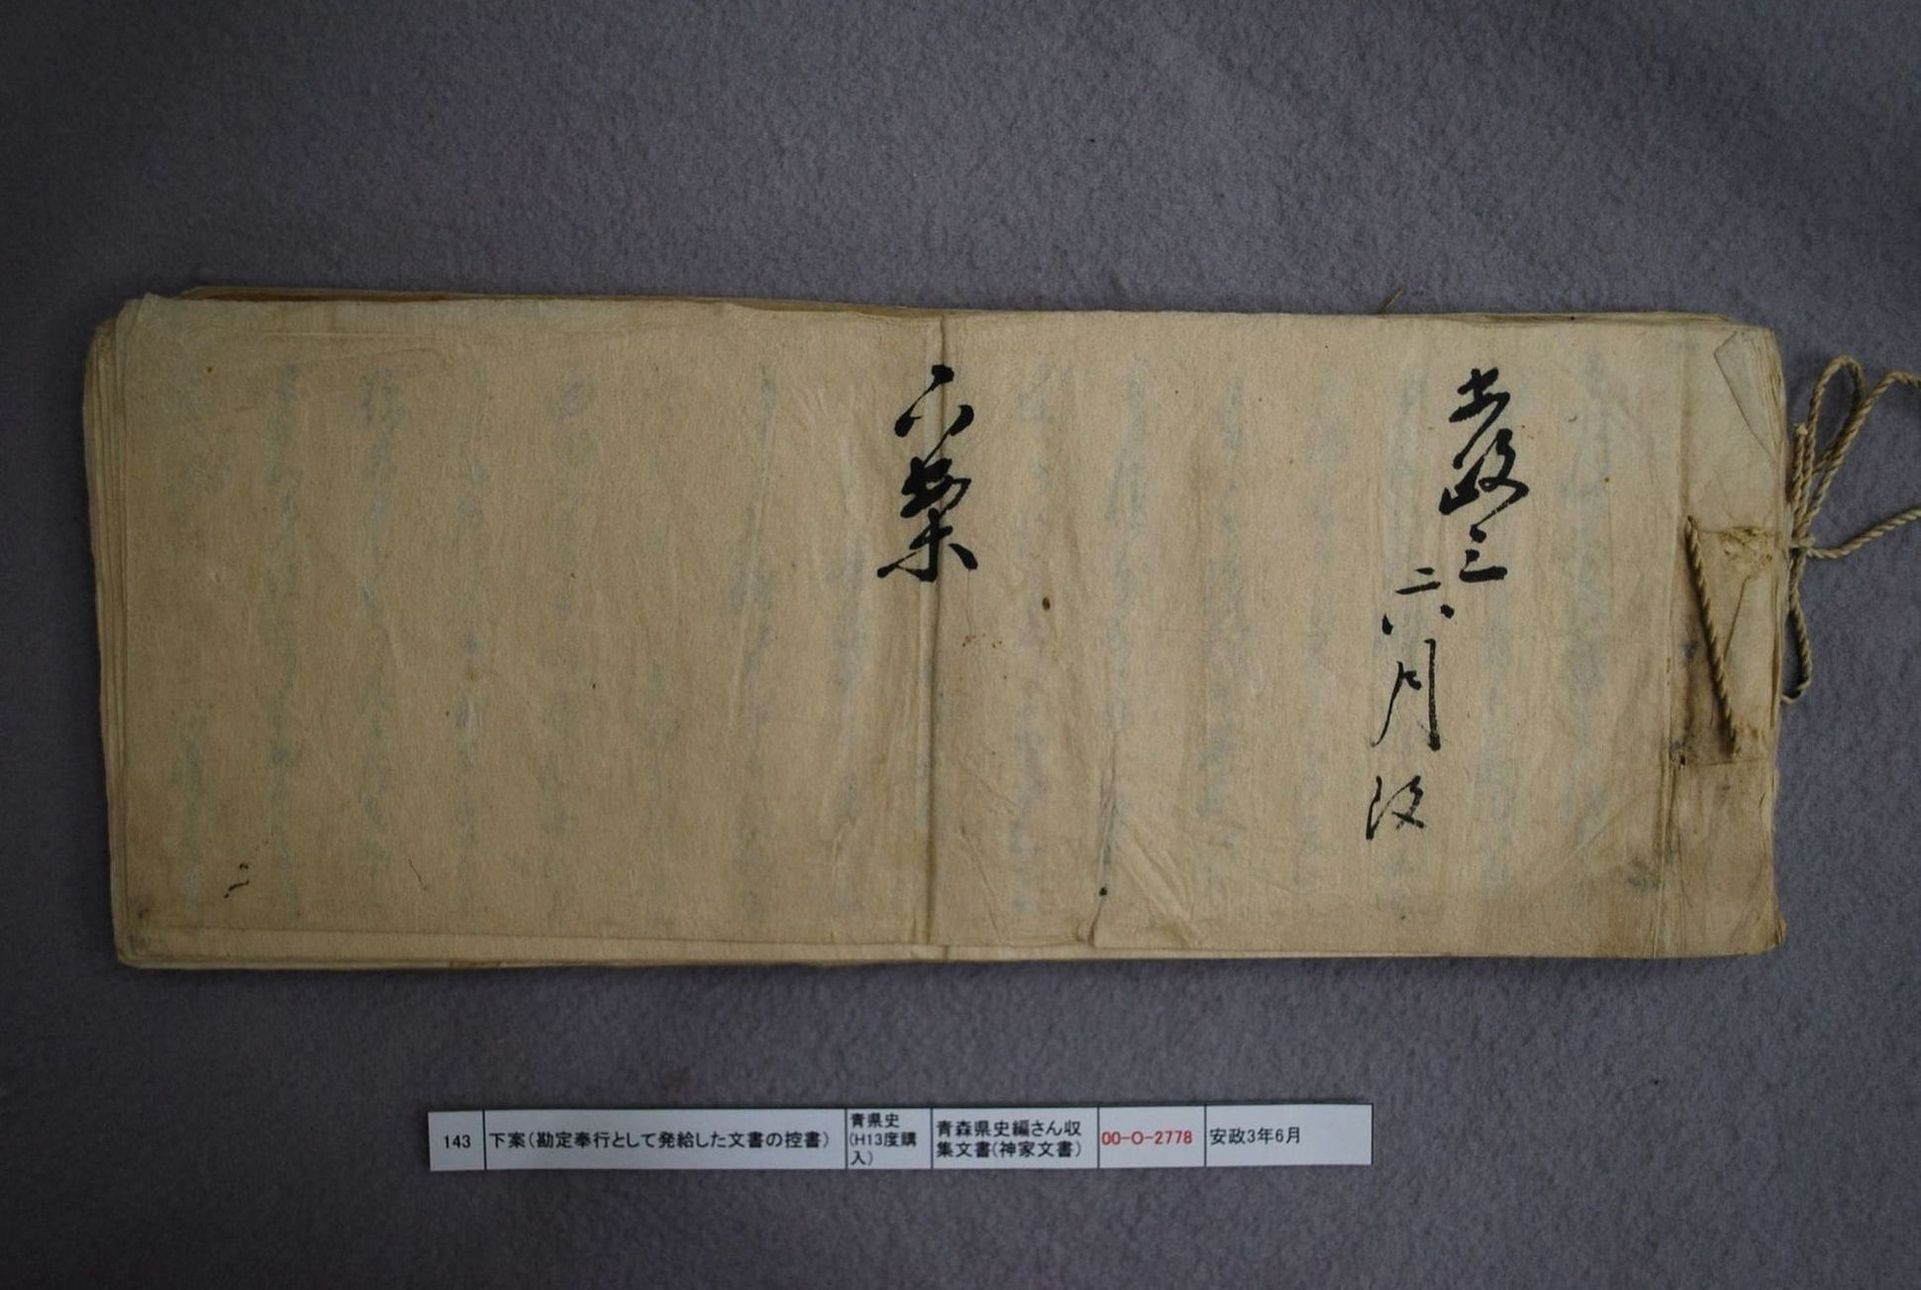 安政三
六月改
下案
143
下案(勘定奉行として発給した文書の控書)
青県史
(H13度購
入)
青森県史編さん収
集文書(神家文書)
00-O-2778
安政3年6月